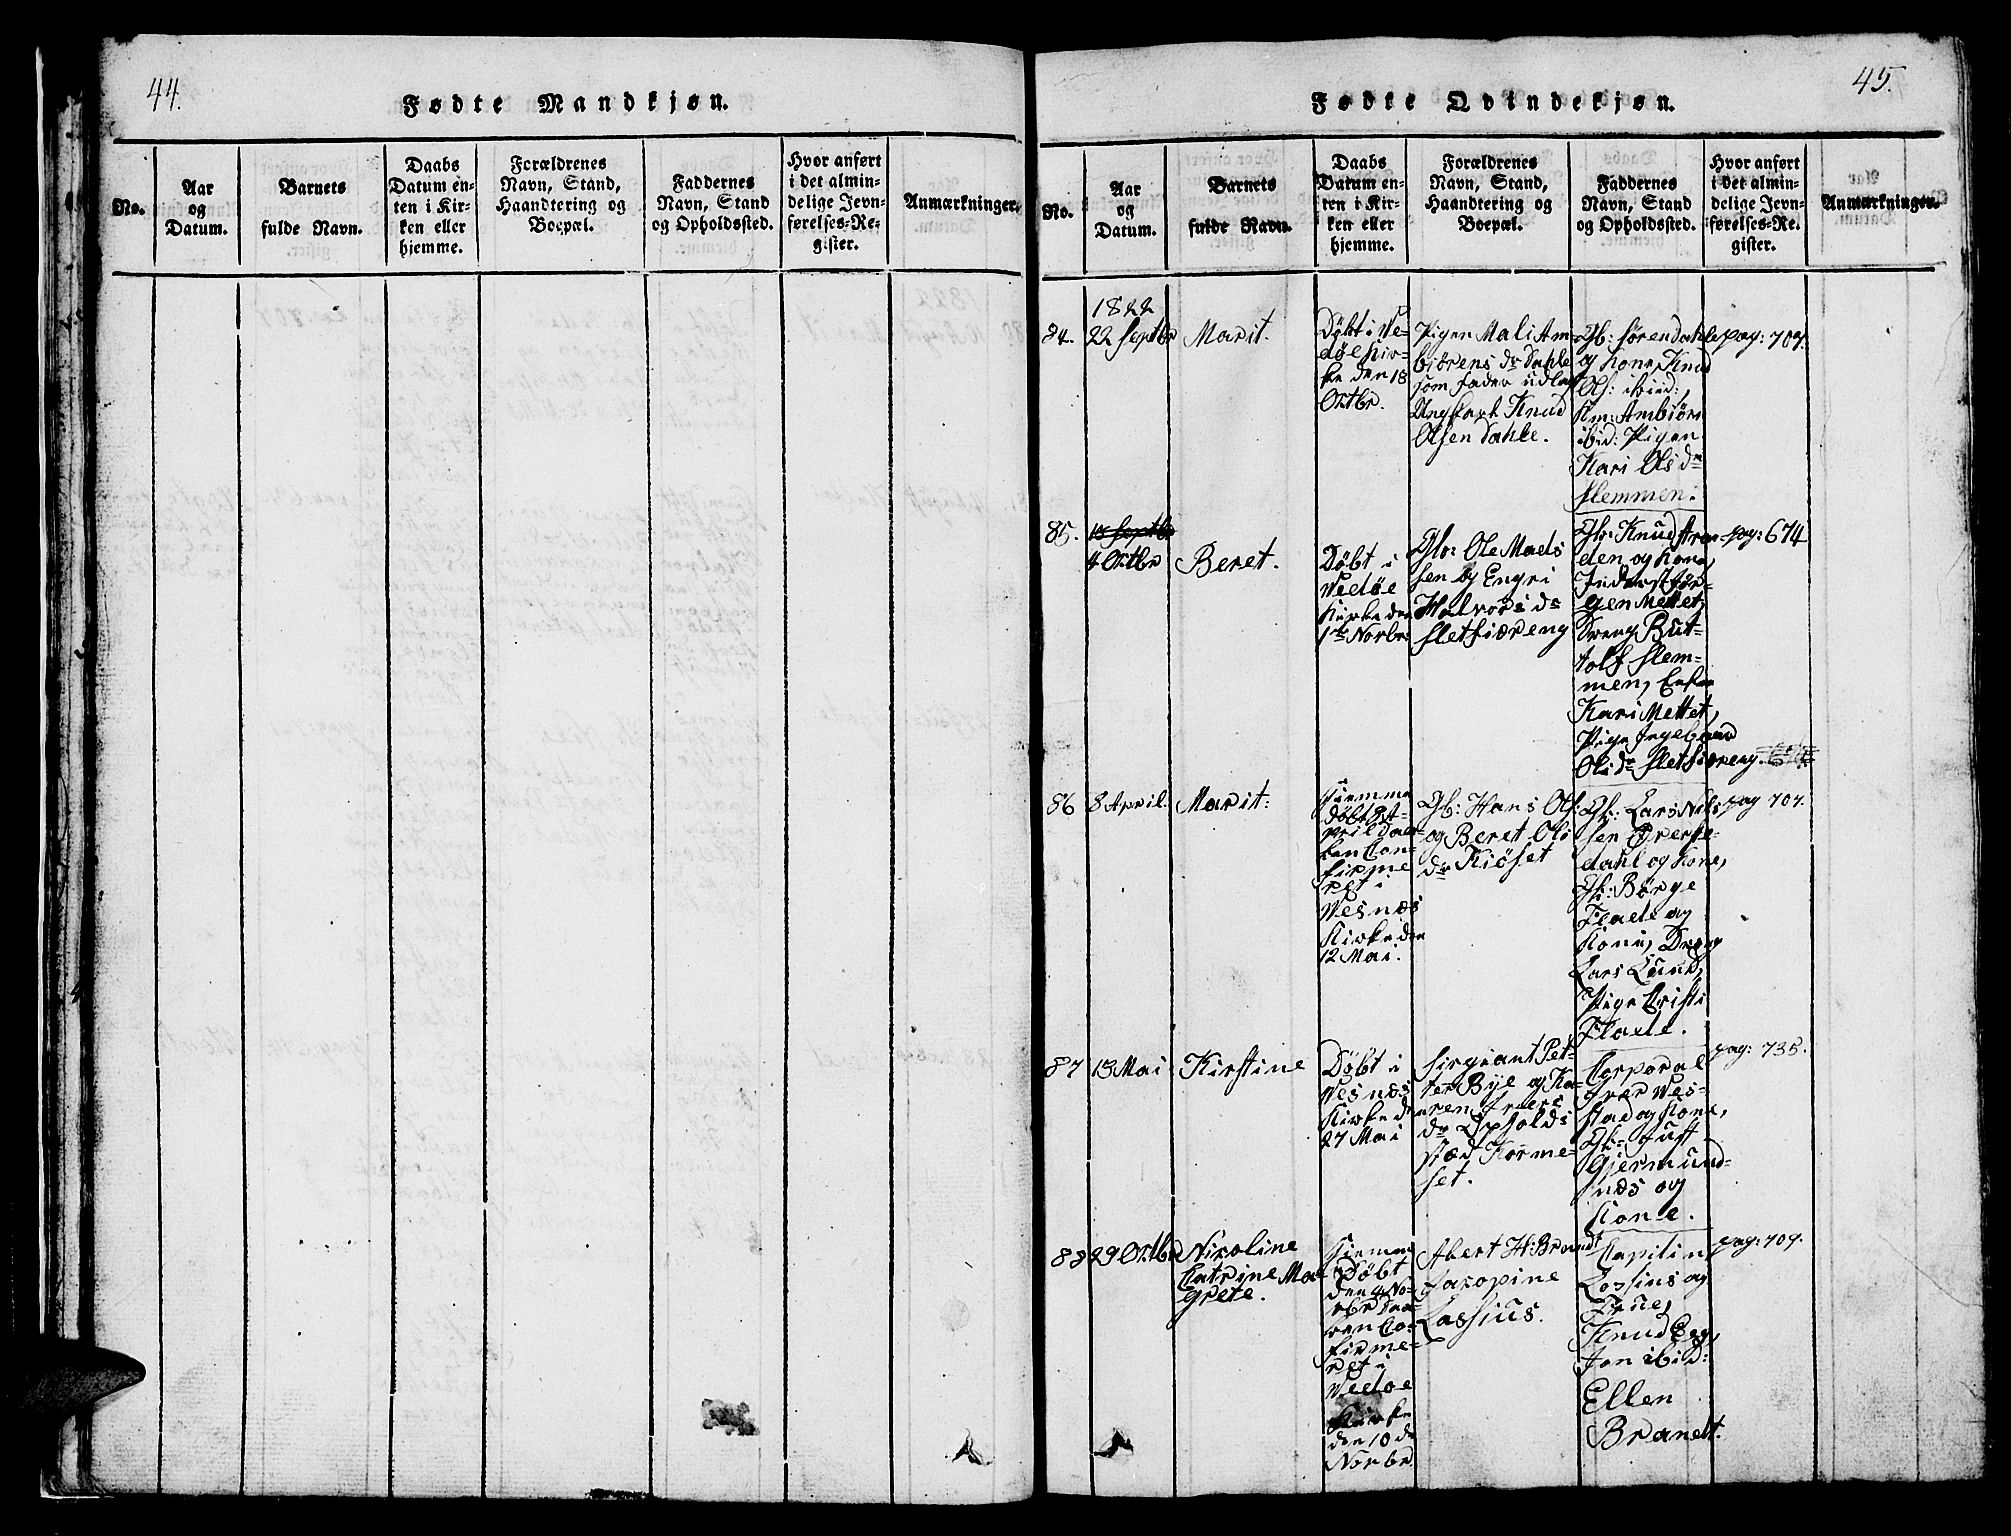 44.
Fødte Mandkjøn.
No.
Aar
og
Datum.
Barnets
fulde Navn.
Daabs
Datum en-
ten i Kir-
ken eller
hjemme.
Forældrenes
Navn, Stand,
Haandtering og
Boepæl.
Faddernes
Navn, Stand
og Opholdssted.
Hvor anført
i det almin-
delige Jevn-
førelses-Re-
gister.
Anmærkninger.
45.
Fødte Qvindekjøn.
No.
Aar
og
Datum.
Barnets
fulde Navn.
Daabs
Datum en-
ten i Kir-
ken eller
hjemme.
Forældrenes
Navn, Stand,
Haandtering og
Boepæl.
Faddernes
Navn, Stand
og Opholdssted.
Hvor anført
i det almin-
delige Jevn-
førelses-Re-
gister.
Anmærkninger.
1822
84.
22 Septbr
Marit.
Døbt i Ve-
døe Kir-
ke den 18
Octbr.
Pigen Mali Am-
biørens dr Dahle
som fader udlagt
Ungkarl Knud
Olsen Dahle.
Gb: Søren Dahle
og Kone, Knud
Ols: ibiid:
Am: Ambiørn
ibid: Pigen
Kari Ols dr
Slemmen:
pag: 707.
85.
4 Octbr
Beret.
Døbt i
Vedøe
Kirke den
1ste Novbr
Gb: Ole Mads
sen og Engri
Halvors dr
Sletfiæreng
Gb: Knud Aren-
den og Kone,
Inderst Jør-
gen Mettet,
Dreng But-
tolf Slem-
men, Enke
Kari Mettet,
Pige Ingeborg
Ols dr Sletfiæreng.
pag: 674
86
8 April.
Marit:
Hiemme
døbt 8 A-
pril Daa-
ben Con-
firme
ret i
Vesnæs
Kirke den
12 Mai.
Gb: Hans Ols:
og Beret Ols
dr Kiøset
Gb: Lars Nils
sen Ørerke-
dahl og Kone,
Gb: Børge
Flaele og
Kone, Dreng
Lars Lund,
Pige Cristi
Flaele.
pag 707.
87
13 Mai
Kirstine
Døbt i
Vesnæs
Kirke d
27 Mai
Sirgiant Pet-
ter Bye og Ka-
ren Ivers
dr Opholds
stæd Korme-
set.
Corporal
Iver Ves-
stad og Kone,
Gb: Just
Gjermund-
næs og
Kone.
pag: 735.
88
29 Octbr
Nicoline
Catrine Ma-
grete.
Hiemme
Døbt
den 4 No-
vbr Daa-
ben Co-
firme-
ret i
Vedøe
Kirke
den 10 de
Novbr.
Abert H: Brandt
Jacopine
Lossius.
Capitin
Lossius og
Frue,
Knud Egg,
Jon ibid:
Ellen
Brandt.
pag: 709.